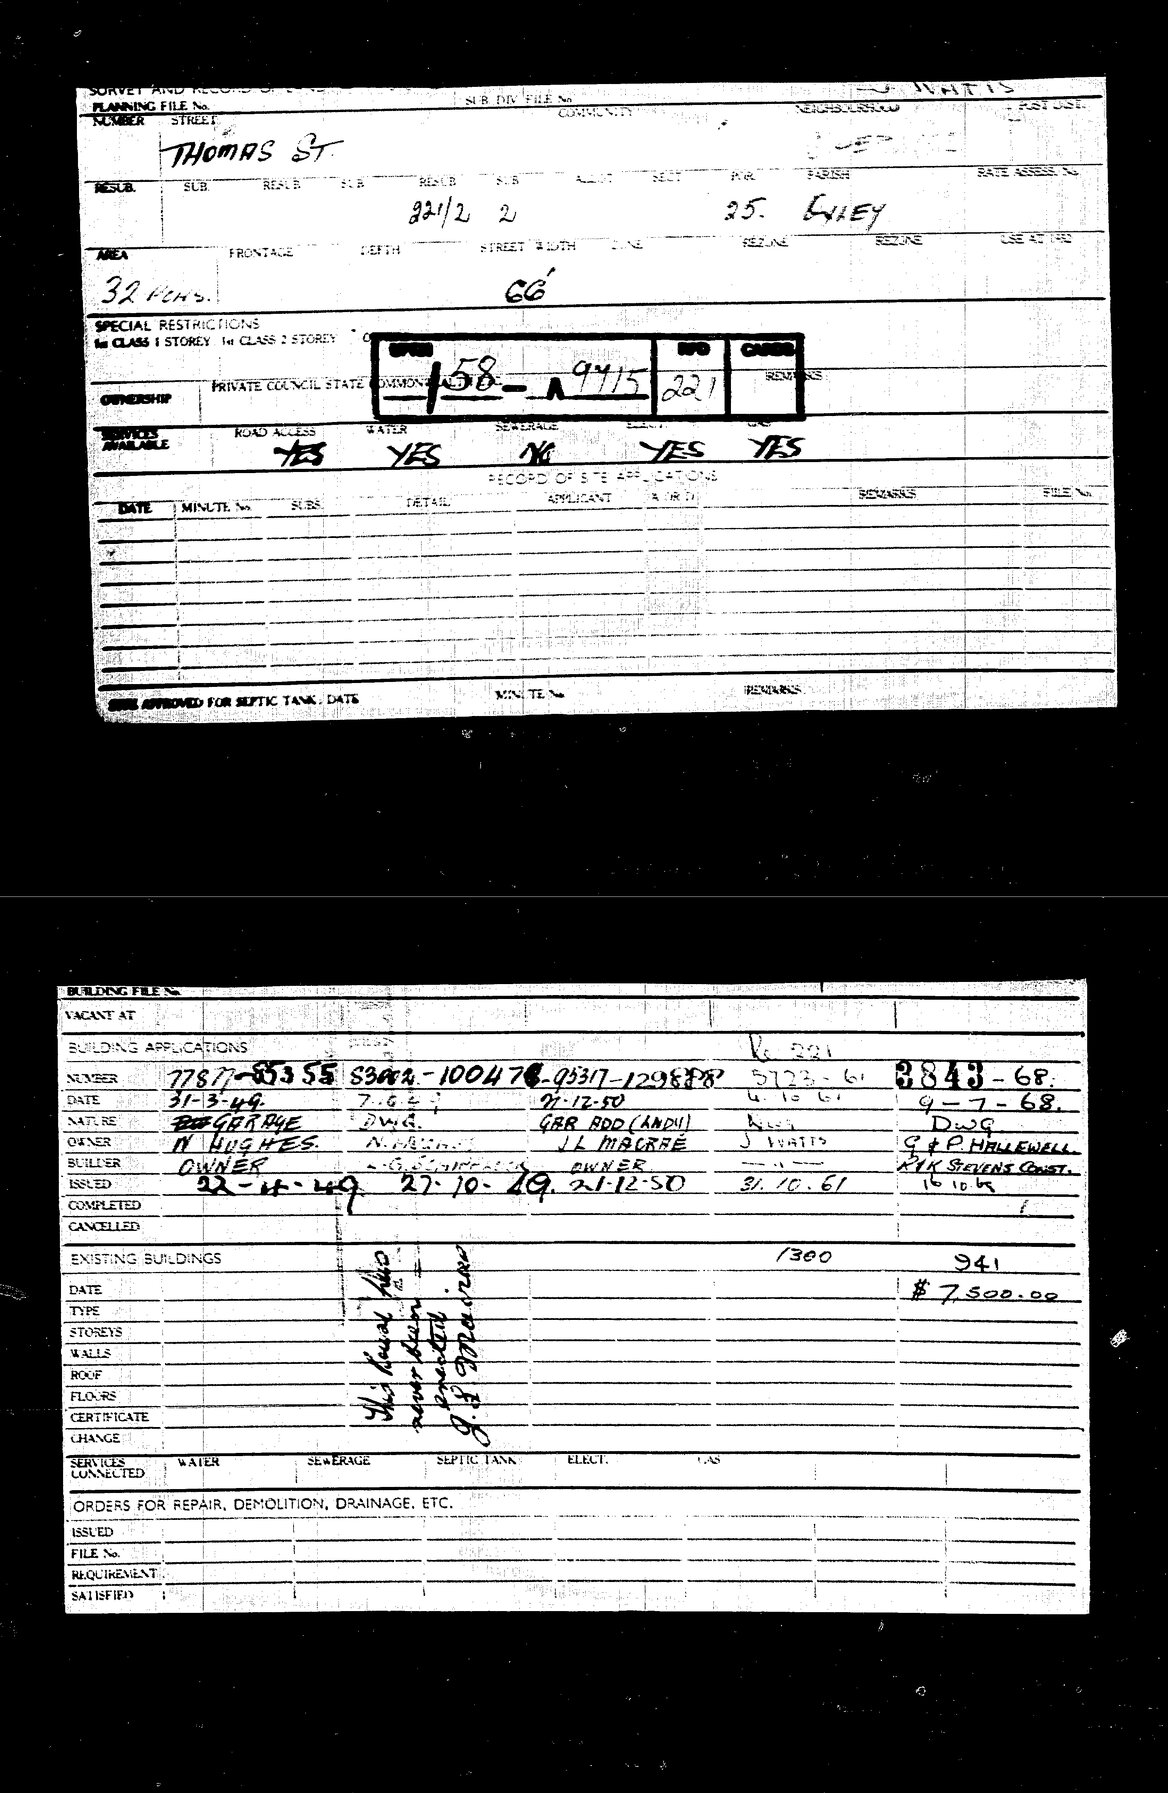 SURVEY AND RECORD OF
PLANNING FILE No. SUB. DIV. FILE No. WATTS
NUMBER STREET COMMUNITY NEIGHBOURHOOD POST DIST.
THOMAS ST.
RESUB. SUB. RESUB SUB RESUB SUB ALLOT SECT POR. PARISH RATE ASSESS. No.
221/2 2 25.
AREA FRONTAGE DEPTH STREET WIDTH ZONE REZONE REZONE USE AT 1952
32 PCHS. 66'
SPECIAL RESTRICTIONS
1st CLASS 1 STOREY 1st CLASS 2 STOREY
58 - A 9715 221 CARDS
OWNERSHIP PRIVATE COUNCIL STATE COMMONWEALTH REMARKS
SERVICES AVAILABLE ROAD ACCESS WATER SEWERAGE ELECT. GAS
YES YES NO YES YES
RECORD OF SITE APPLICATIONS
DATE MINUTE No. SUBS. DETAIL APPLICANT A OR D REMARKS FILE No.
SITE APPROVED FOR SEPTIC TANK: DATE MINUTE No. REMARKS
BUILDING FILE No.
VACANT AT
BUILDING APPLICATIONS Re 221
NUMBER 77877-85355 83002-100476 95317-129888 5723-61 3843-68.
DATE 31-3-49. 21-12-50 4.10.61 9-7-68.
NATURE GARAGE DWG. GAR ADD (LNDY) DWG
OWNER N HUGHES. J L MACRAE J WATTS G & P. HALLEWELL.
BUILDER OWNER OWNER R & K STEVENS CONST.
ISSUED 22-4-49 27-10-49. 21-12-50 31.10.61 16.10.68
COMPLETED
CANCELLED
EXISTING BUILDINGS 1300 941
DATE $ 7,500.00
TYPE
STOREYS
WALLS
ROOF
FLOORS
CERTIFICATE
CHANGE
This house has
never been
erected
J. L Macrae
SERVICES CONNECTED WATER SEWERAGE SEPTIC TANK ELECT. GAS
ORDERS FOR REPAIR, DEMOLITION, DRAINAGE, ETC.
ISSUED
FILE No.
REQUIREMENT
SATISFIED